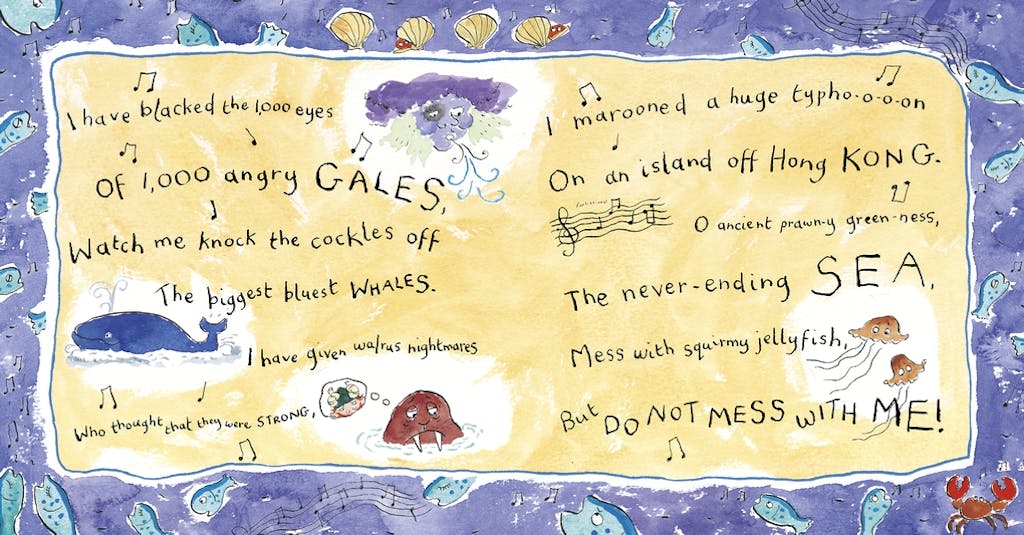 I have blacked the 1,000 eyes
Of 1,000 angry GALES,
Watch me knock the cockles off
The biggest bluest WHALES.
I have given walrus nightmares
Who thought that they were STRONG,
I marooned a huge typho-o-o-on
On an island off Hong KONG.
O ancient prawn-y green-ness,
The never-ending SEA,
Mess with squirmy jellyfish,
But DO NOT MESS WITH ME!